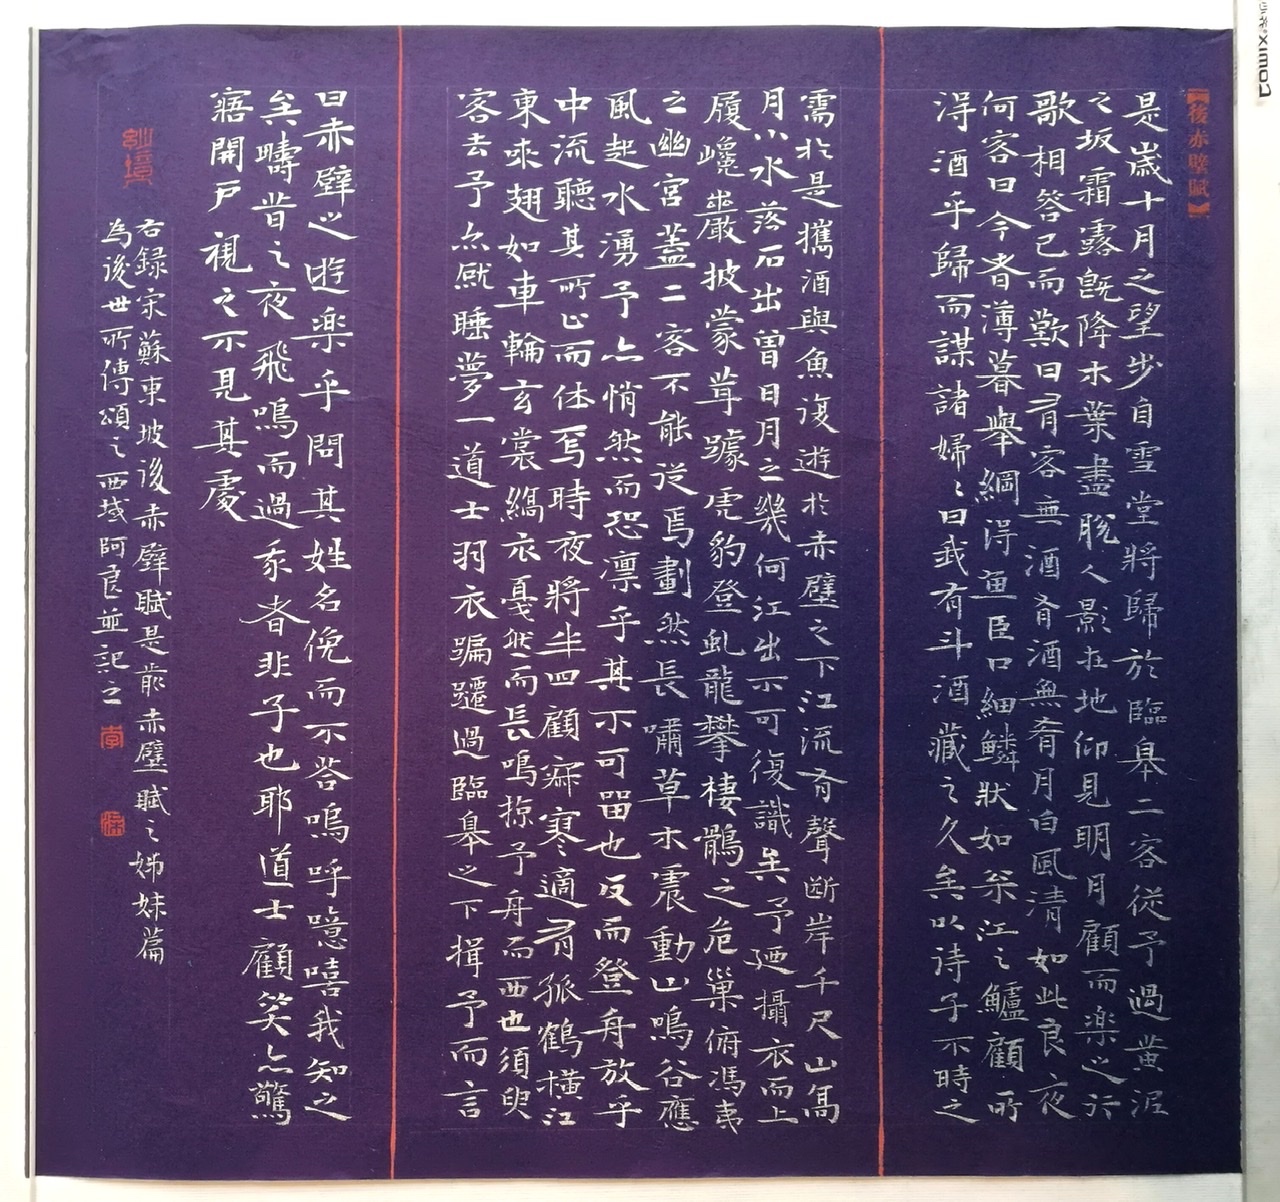 【後赤壁賦】
是歲十月之望步自雪堂將歸於臨皋二客從予過黃泥
之坂霜露既降木葉盡脫人影在地仰見明月顧而樂之行
歌相答已而歎曰有客無酒有酒無肴月白風清如此良夜
何客曰今者薄暮舉網得魚巨口細鱗狀如松江之鱸顧所
得酒乎歸而謀諸婦〻曰我有斗酒藏之久矣以待子不時之
需於是攜酒與魚復遊於赤壁之下江流有聲斷岸千尺山高
月小水落石出曾日月之幾何江山不可復識矣予廼攝衣而上
履巉巖披蒙茸踞虎豹登虬龍攀棲鶻之危巢俯馮夷
之幽宮蓋二客不能從焉劃然長嘯草木震動山鳴谷應
風起水湧予亦悄然而恐凜乎其不可留也反而登舟放乎
中流聽其所止而休焉時夜將半四顧寂寥適有孤鶴橫江
東來翅如車輪玄裳縞衣戞然而長鳴掠予舟而西也須臾
客去予亦就睡夢一道士羽衣蹁躚過臨皋之下揖予而言
曰赤壁之遊樂乎問其姓名俛而不答嗚呼噫嘻我知之
矣疇昔之夜飛鳴而過我者非子也耶道士顧笑亦驚
寤開戶視之不見其處
右錄宋蘇東坡後赤壁賦是前赤壁賦之姊妹篇
為後世所傳頌之西域阿良並記之